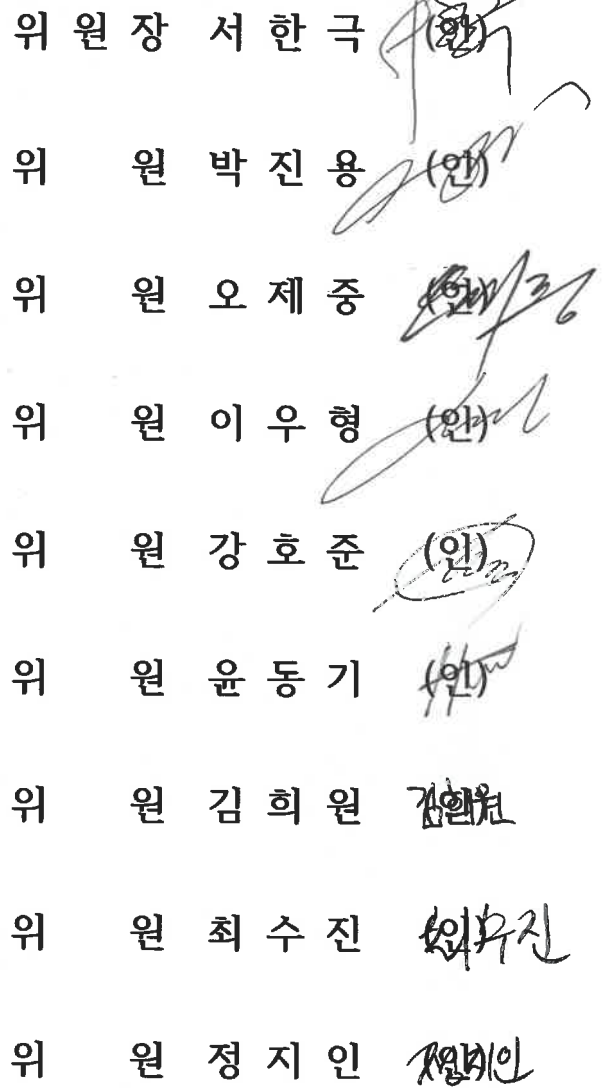 위 원 장 서 한 극 (인)
위 원 박 진 용 (인)
위 원 오 제 중 (인)
위 원 이 우 형 (인)
위 원 강 호 준 (인)
위 원 윤 동 기 (인)
위 원 김 희 원 (인) 김희원
위 원 최 수 진 (인) 최수진
위 원 정 지 인 (인) 정지인